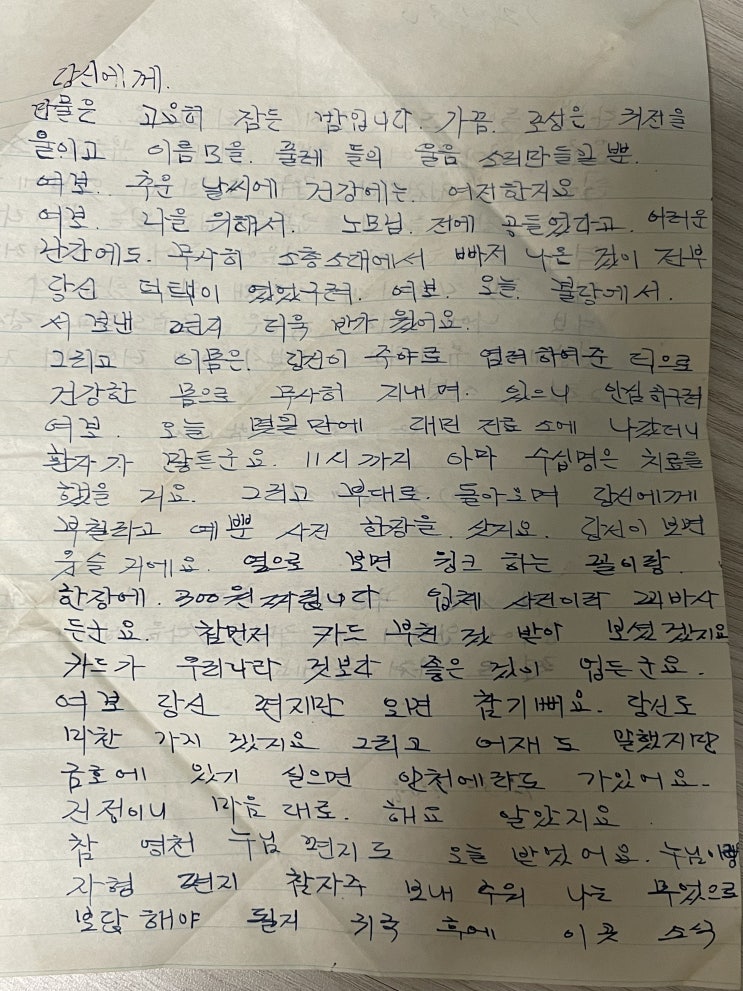 당신에게.
만물은 고요히 잠든 밤입니다. 가끔. 포성은 귀전을
울이고 이름모을. 풀레 들의 울음 소리만들릴 뿐.
여보. 추운 날씨에 건강에는. 여전한지요
여보. 나를 위해서. 노모님. 전에 공들였다고. 어러운
난간에도. 무사히 소총소대에서 빠저 나온 것이 전부
당신 덕택이 였었구려. 여보. 오늘. 불당에서.
서 보낸 편지 더욱 반가 웠어요.
그리고 이몸은. 당신이 주야로 염려하여준 덕으로
건강한 몸으로 무사히 지내며. 있으니 안심하구려
여보. 오늘 몇일만에 대민 진료소에 나갔더니
환자가 많튼군요. 11시까지 아마 수십명은 치료을
했을 거요. 그리고 부대로. 돌아오며 당신에게
부철라고 예뿐 사진 한장을. 삿지요. 당신이 보면
웃슬 거에요. 옆으로 보면 윙크 하는 꼴이랑.
한장에. 300원짜립니다 입체 사진이라 꾀비사
든군요. 참먼저 카드 부친 것 받아 보셨겠지요
카드가 우리나라 것보다 좋은 것이 업든군요.
여보 당신 편지만 오면 참기뻐요. 당신도
마찬 가지 겠지요 그리고 어재도 말했지만
금호에 있기 실으면 안천에라도 가있어요.
친정이니 마음 대로. 해요 알았지요.
참 영천 누님 편지도 오늘 받었어요. 누님이랑
자형 편지 참자주 보내 주워 나는 무었으로
보답해야 될지 귀국 후에 이곳 소식